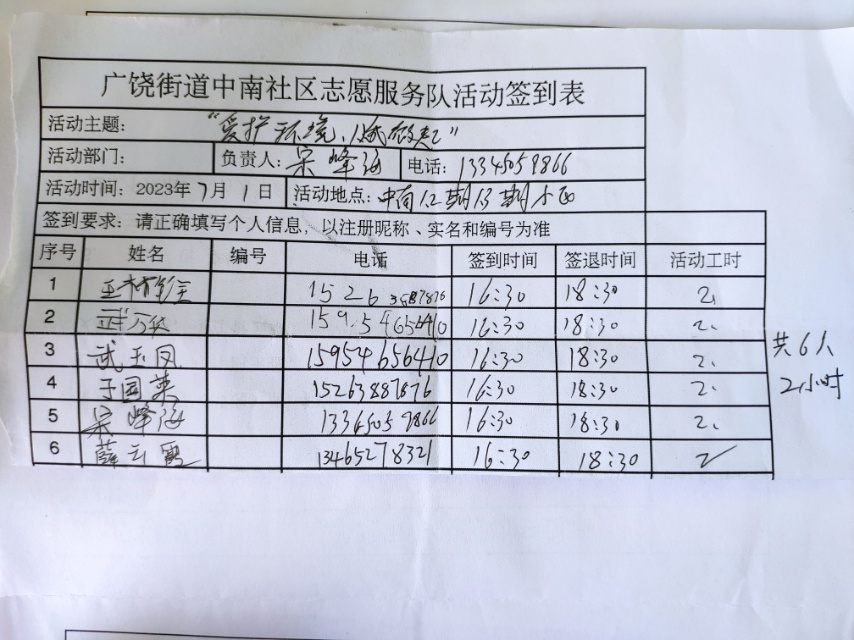 广饶街道中南社区志愿服务队活动签到表
活动主题: “爱护环境、人人做起”
活动部门: 负责人: 宋峰海 电话: 13345059866
活动时间: 2023年7月1日 活动地点: 中南12期13期小区
签到要求: 请正确填写个人信息, 以注册昵称、实名和编号为准
序号 姓名 编号 电话 签到时间 签退时间 活动工时
1 16:30 18:30 2.
2 15954656410 16:30 18:30 2.
3 武玉凤 15954656410 16:30 18:30 2.
4 于国英 15263887876 16:30 18:30 2.
5 宋峰海 13365059866 16:30 18:30 2.
6 薛云霞 13465278321 16:30 18:30 2
共6人
2小时